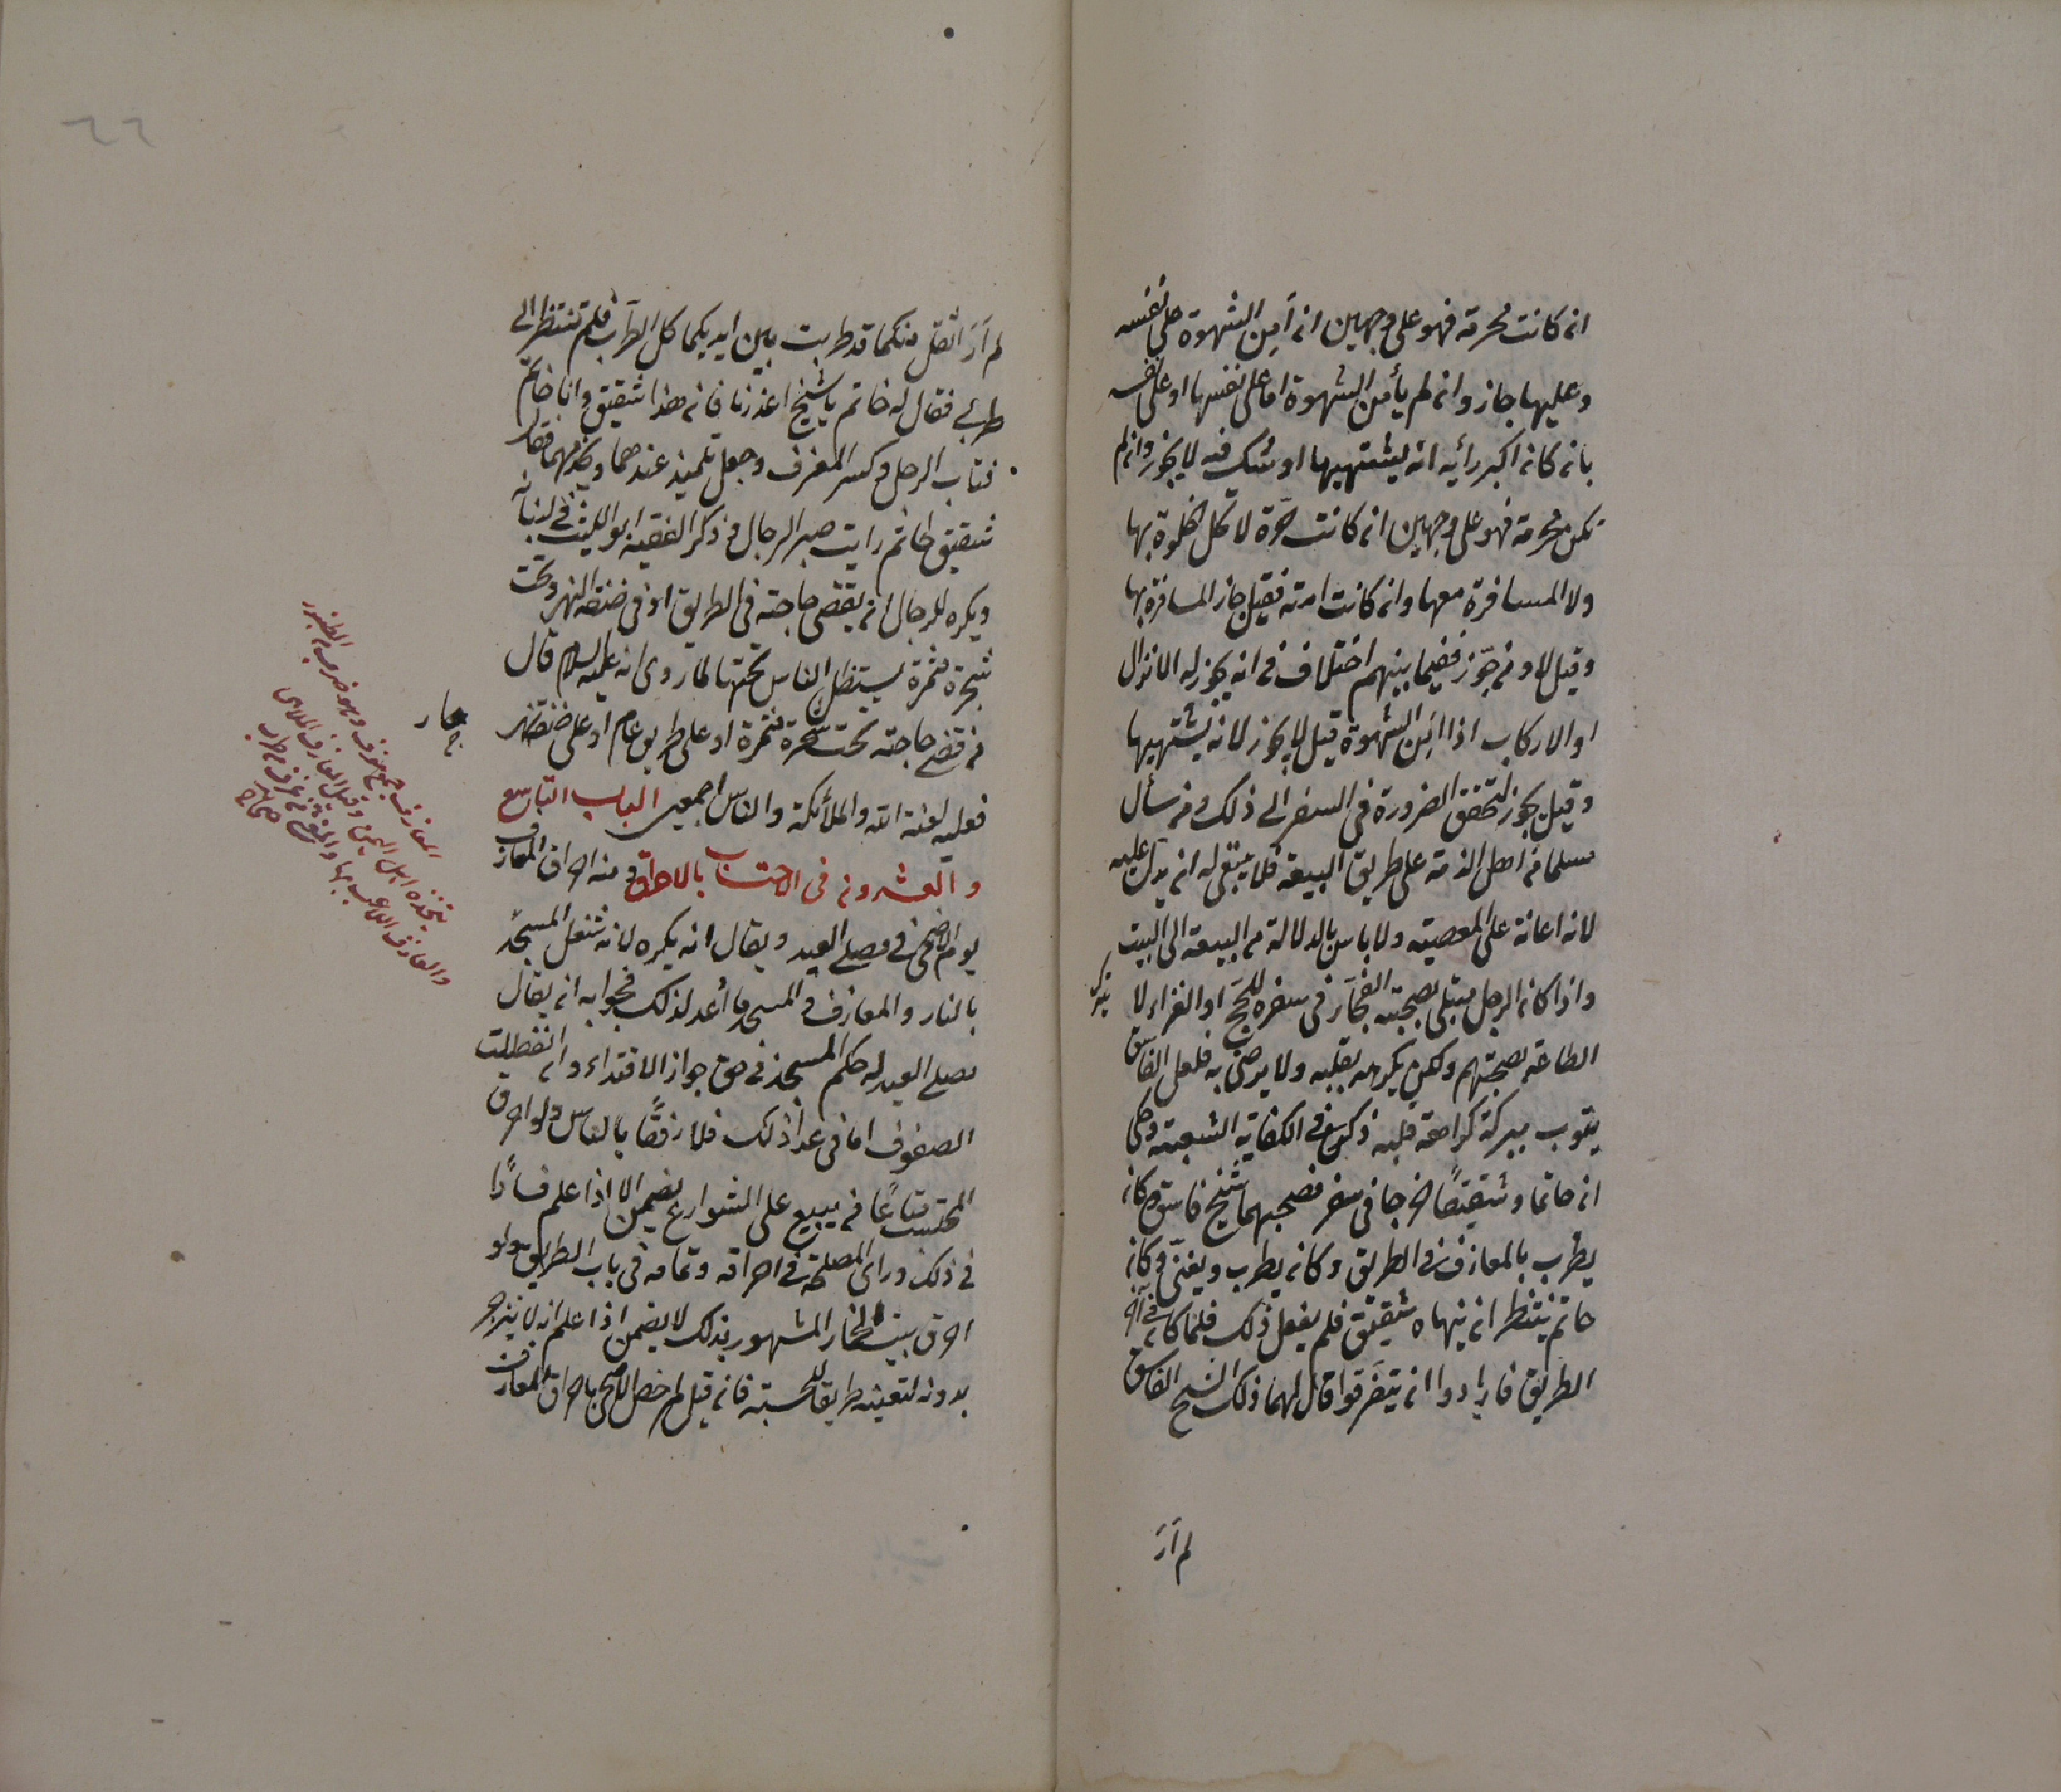 ان كانت محرمة فهو على وجهين ان أمن الشهوة على نفسه
وعليها جاز وان لم يأمن الشهوة اما على نفسها او على نفسه
بان كان اكبر رأيه انه يشتهيها او شك فيه لا يجوز وان لم
تكن محرمة فهو على وجهين ان كانت حرّة لا تحل الخلوة بها
ولا المسافرة معها وان كانت امته فقيل جاز المسافرة بها
وقيل لا ومن جوّز ففيما بينهم اختلاف في انه يجوز له الانزال
او الاركاب اذا امن الشهوة قيل لا يجوز لانه يشتهيها
وقيل يجوز لتحقق الضرورة في السفر الى ذلك ومن سأل
مسلما من اهل الذمة على طريق البيعة فلا ينبغى له ان يدل عليه
لانه اعانة على المعصية ولا باس بالدلالة من البيعة الى البيت
واذا كان الرجل مبتلى بصحبة الفجّار فى سفره للحج او الغزاء لا
يترك
الطاعة بصحبتهم ولكن يكرهه بقلبه ولا يرضى به فلعل الفاسق
يتوب ببركة كراهة قلبه ذكره في الكفاية الشعبية وحكى
ان حاتما وشقيقًا خرجا فى سفر فصحبهما شيخ فاسق وكان
يطرب بالمعازف في الطريق وكان يطرب ويغنّى وكان
حاتم ينتظر ان ينهاه شقيق فلم يفعل ذلك فلما كان فى آخر
الطريق فارادوا ان يتفرقوا قال لهما ذلك الشيخ الفاسق
لم أرَ
٦٦
لم أرَ اثقل منكما قد طربت بين ايديكما كل الطرب فلم تنتظر الى
طربى فقال له حاتم يا شيخ اعذرنا فان هذا شقيق وانا حاتم
فتاب الرجل وكسر المعزف وجعل تلميذ عندهما ويخدمهما فقال
شقيق لحاتم رايت صبر الرجال من ذكر الفقيه ابو الليث فى لبنانه
ويكره للرجال ان يقضى حاجته فى الطريق او فى ضفة النهر وتحت
شجرة مثمرة يستظل الناس تحتها لما روى انه عليه السلام قال
من قضى حاجته تحت شجرة مثمرة او على طريق عام او على ضفة نهر
فعليه لعنة الله والملائكة والناس اجمعين الباب التاسع
والعشرون فى الاحتساب بالاحراق ومنه احراق المعازف
يوم الاضحى فى مصلى العيد ويقال انه يكره لانه شغل المسجد
بالنار والمعازف والمسجد ما أعد لذلك فجوابه ان يقال
مصلى العيد له حكم المسجد فى حق جواز الاقتداء وان انفصلت
الصفوف اما فى عدا ذلك فلا رفقًا بالناس ولو احرق
المحتسب متاعًا من يبيع على الشوارع يضمن الا اذا علم فسادًا
فى ذلك وراى المصلحة فى احراقه وتمامه فى باب الطريق ولو
احرق بيت الخمار المشهور بذلك لا يضمن اذا علم انه لا ينزجر
بدونه لتعينه طريقا للحسبة فان قيل لم خص الاضحى باحراق المعازف
المعازف جمع معزف وهو ضرب من الطنبور
يتخذه اهل اليمن وقيل المعازف الملاهى
والعازف اللاعب بها والمغنى
صحاح